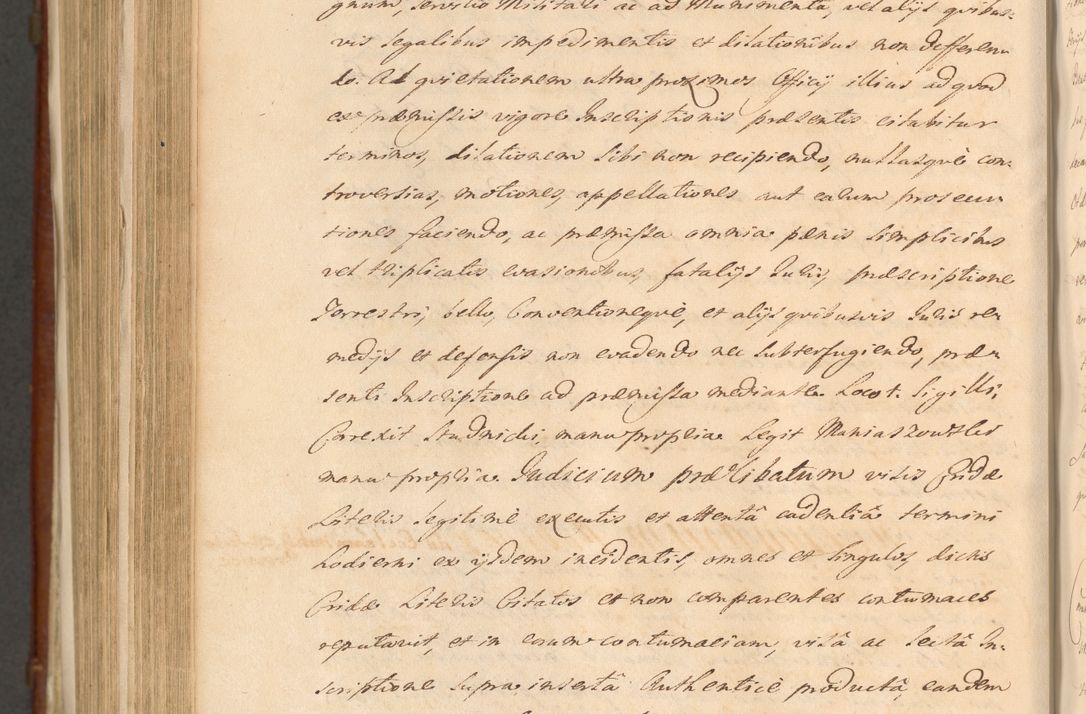 gnum, servitio Militari ac ad Munimenta, vel alijs quibus-
vis legalibus impedimentis et dilationibus non defferen
do. Ad quietationem ultra proximos Officij illius ad quod
ex præmissis vigore Inscriptionis præsentis citabitur
terminos, dilationem sibi non recipiendo, nullasquè con-
troversias, motiones, appellationes aut earum prosecu-
tiones faciendo, ac præmissa omnia pænis simplicibus
vel triplicatis evasionibus, fatalijs Iuris, præscriptione
Terrestri, bello, Conventionequè, et alijs quibusvis Iuris re-
medijs et defensis non evadendo nec subterfugiendo, præ-
senti Inscriptione ad præmissa mediante. Loco +. Sigilli,
Correxit Studnicki, manu propria Legit
manu propria. Iudicium prælibatum visis Cridæ
Literis legitimè executis et attentâ cadentiâ termini
hodierni ex ijsdem incidentis, omnes et singulos, dictis
Cridæ Literis Citatos et non comparentes contumaces
reputavit, et in eorum contumaciam, visâ ac lectâ In-
scriptione supra insertâ Authenticè productâ, eandem